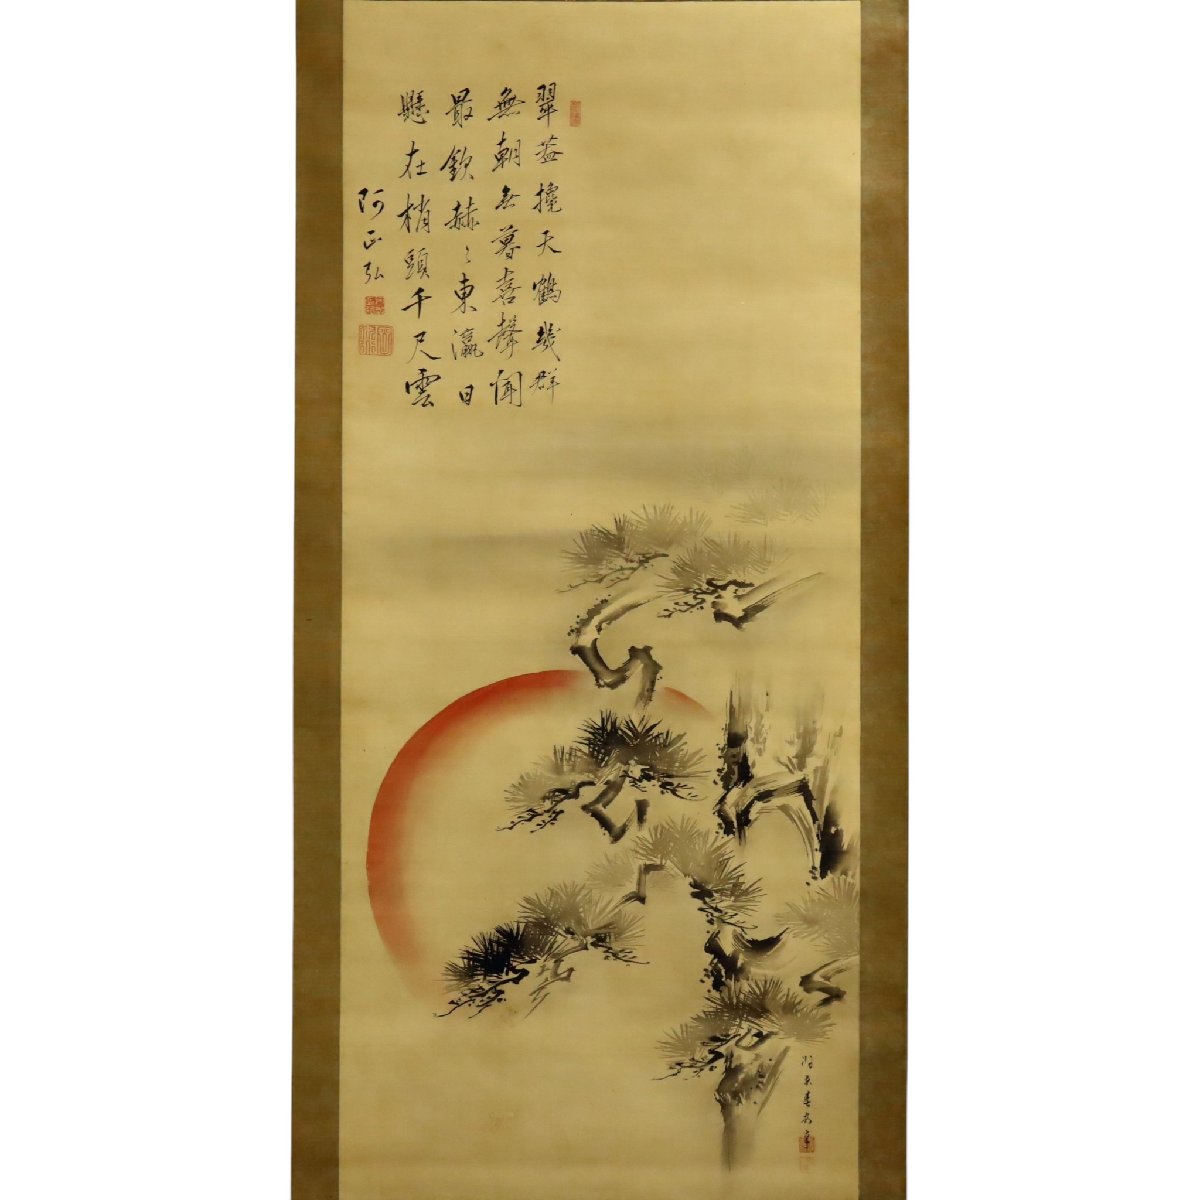 翠蓋摩天鶴幾群
無朝無暮喜聲聞
最欽赫〻東瀛日
懸在梢頭千尺雲
阿正弘